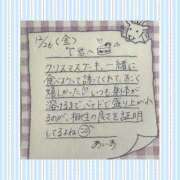 12/26(金)
T様へ
クリスマスケーキ、一緒に
食べようって誘ってくれて、すごく
嬉しかった♡いつも身体が
溶けるまでベッドで盛り上がれ
るのが、相性の良さを証明
してるよね